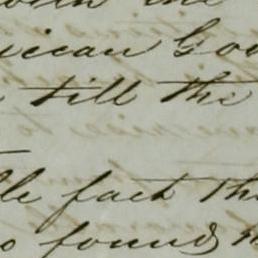 the
ican Gov
till the
le fact th
o found